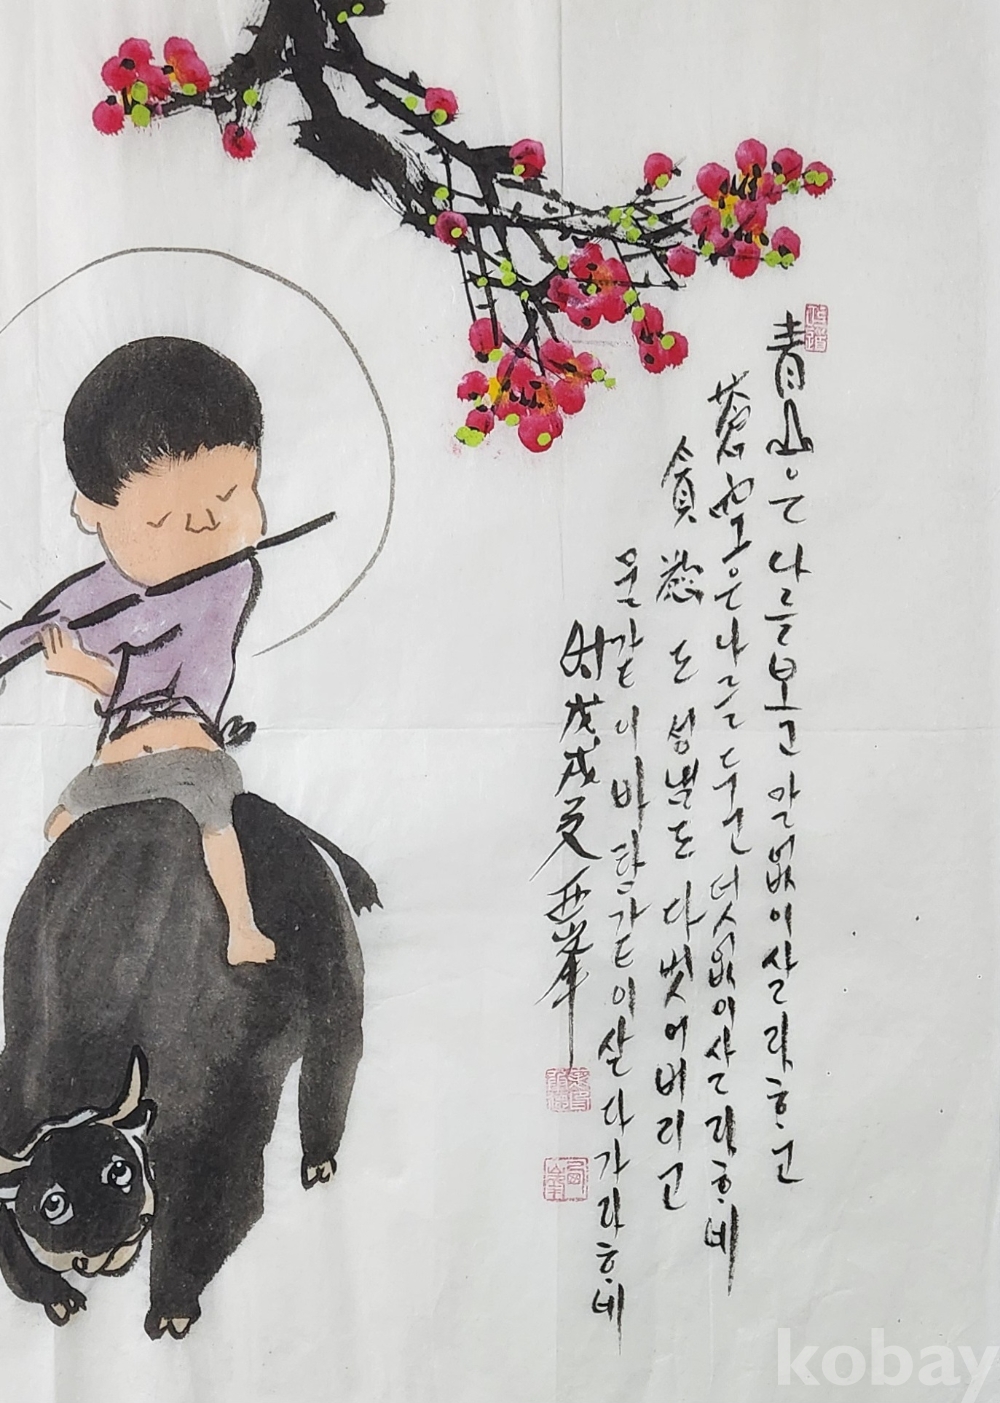 青山은 나를보고 말없이살라ᄒᆞ고
蒼空은 나를두고 덧없이살라ᄒᆞ네
貪慾도 성냄도 다벗어버리고
물같이 바람같이살다가라ᄒᆞ네
时戊戌夏 亞峯
kobay